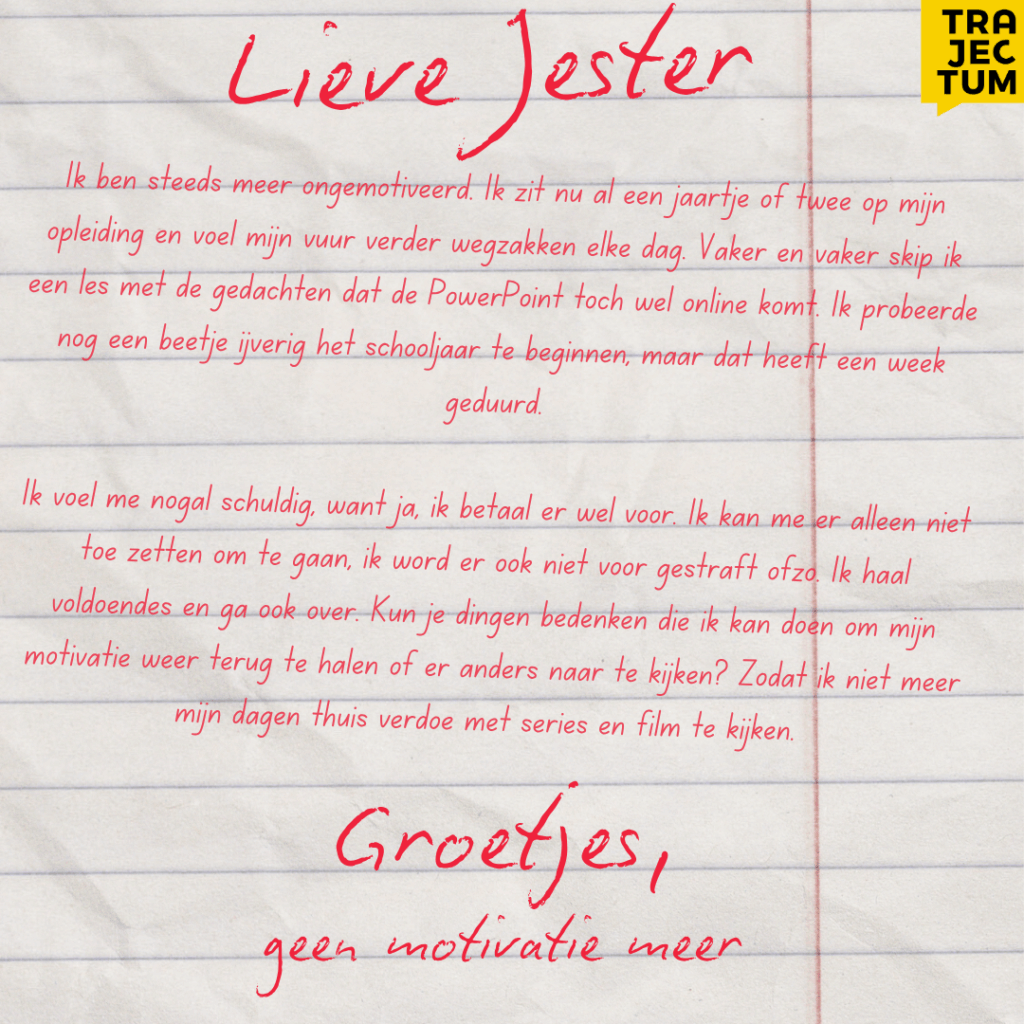 Lieve Jester
TRA
JEC
TUM
Ik ben steeds meer ongemotiveerd. Ik zit nu al een jaartje of twee op mijn
opleiding en voel mijn vuur verder wegzakken elke dag. Vaker en vaker skip ik
een les met de gedachten dat de PowerPoint toch wel online komt. Ik probeerde
nog een beetje ijverig het schooljaar te beginnen, maar dat heeft een week
geduurd.
Ik voel me nogal schuldig, want ja, ik betaal er wel voor. Ik kan me er alleen niet
toe zetten om te gaan, ik word er ook niet voor gestraft ofzo. Ik haal
voldoendes en ga ook over. Kun je dingen bedenken die ik kan doen om mijn
motivatie weer terug te halen of er anders naar te kijken? Zodat ik niet meer
mijn dagen thuis verdoe met series en film te kijken.
Groetjes,
geen motivatie meer